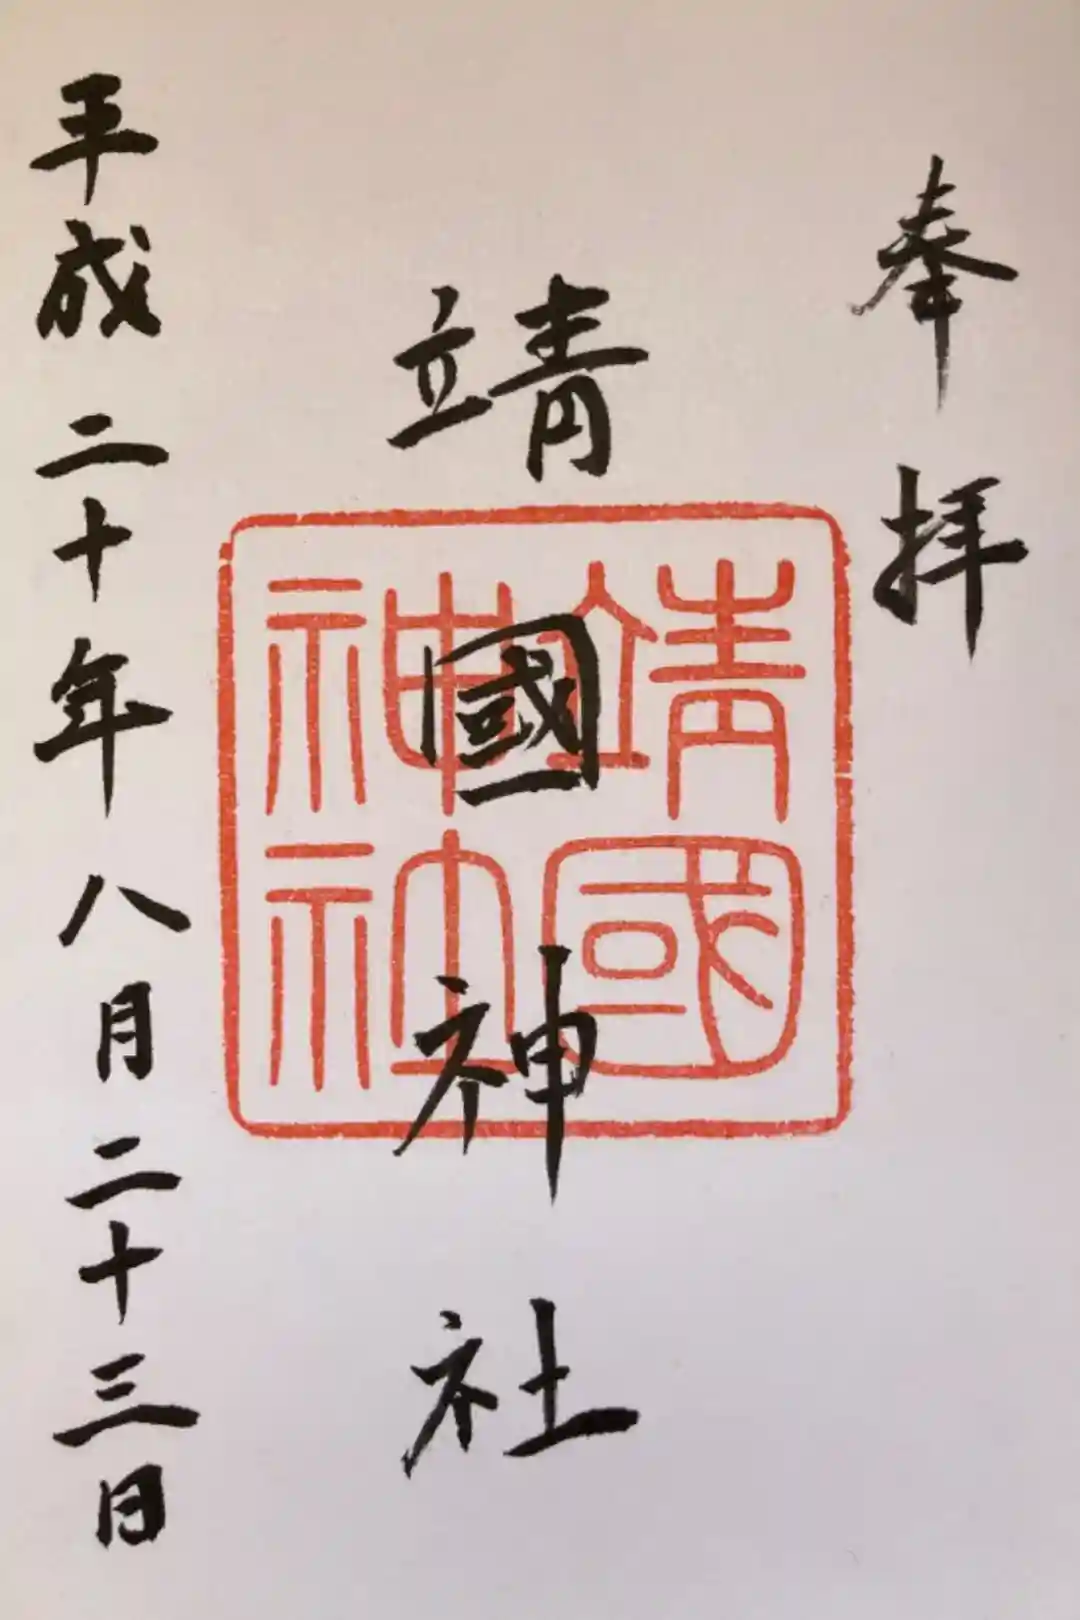 奉拝
靖國神社
靖國
神社
平成二十年八月二十三日